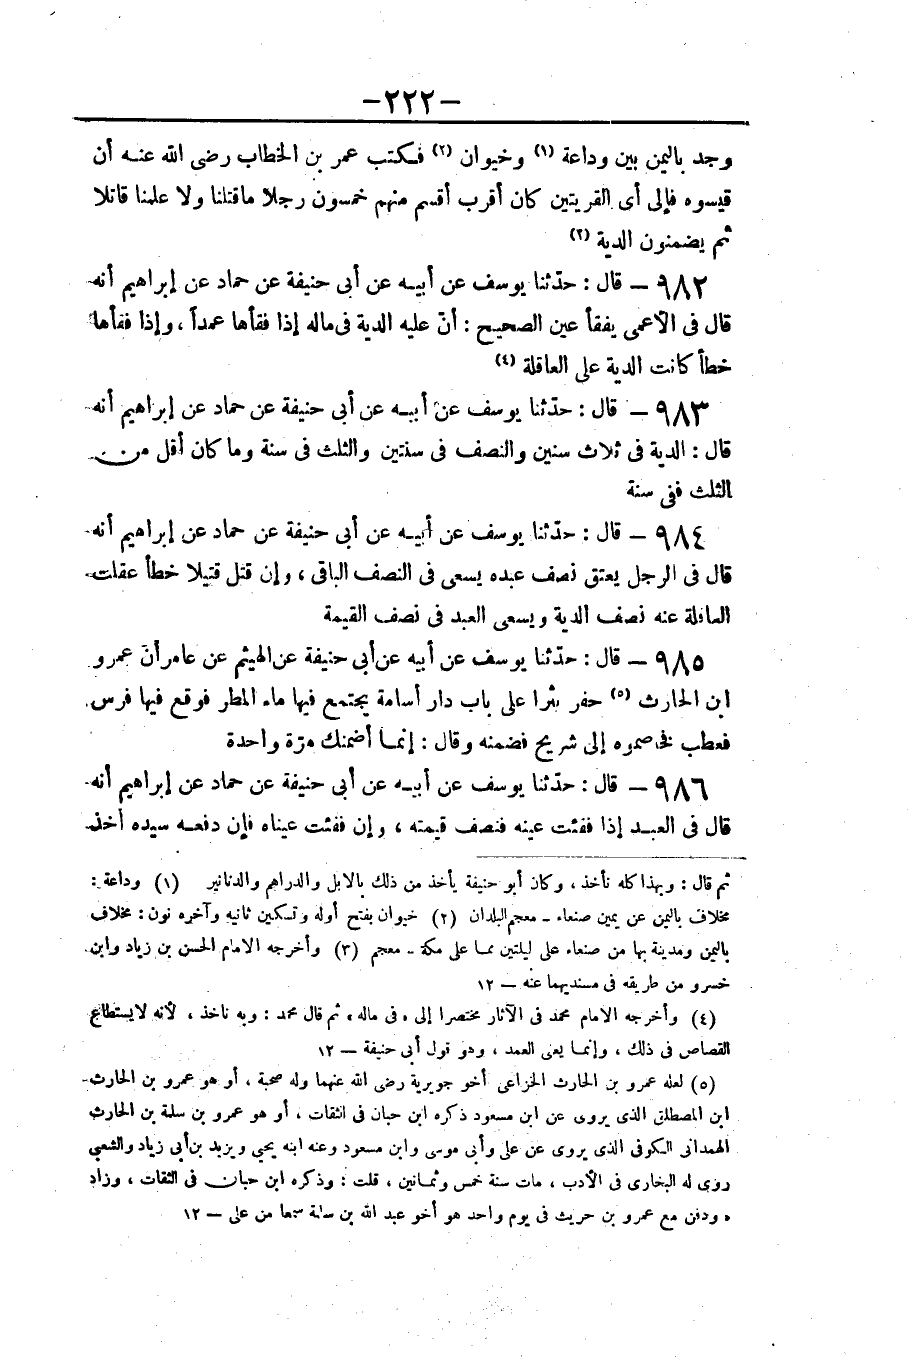 -٢٢٢-
وجد باليمن بين وداعة (١) وخيوان (٢) فكتب عمر بن الخطاب رضى الله عنه أن
قيسوه فإلى أى القريتين كان أقرب أقسم منهم خمسون رجلا ماقتلنا ولا علمنا قاتلا
ثم يضمنون الدية (٣)
٩٨٢ — قال : حدّثنا يوسف عن أبيه عن أبى حنيفة عن حماد عن إبراهيم أنه
قال فى الأعمى يفقأ عين الصحيح : أنّ عليه الدية فى ماله إذا فقأها عمداً ، وإذا فقأها
خطأ كانت الدية على العاقلة (٤)
٩٨٣ — قال : حدّثنا يوسف عن أبيه عن أبى حنيفة عن حماد عن إبراهيم أنه
قال : الدية فى ثلاث سنين والنصف فى سنتين والثلث فى سنة وما كان أقل من
الثلث ففى سنة
٩٨٤ — قال : حدّثنا يوسف عن أبيه عن أبى حنيفة عن حماد عن إبراهيم أنه
قال فى الرجل يعتق نصف عبده يسعى فى النصف الباقى ، وإن قتل قتيلا خطأ عقلت
العاقلة عنه نصف الدية ويسعى العبد فى نصف القيمة
٩٨٥ — قال : حدّثنا يوسف عن أبيه عن أبى حنيفة عن الهيثم عن عامر أنّ عمرو
ابن الحارث (٥) حفر بئرا على باب دار أسامة يجتمع فيها ماء المطر فوقع فيها فرس
فعطب فخاصموه إلى شريح فضمنه وقال : إنما أضمنك مرّة واحدة
٩٨٦ — قال : حدّثنا يوسف عن أبيه عن أبى حنيفة عن حماد عن إبراهيم أنه
قال فى العبد إذا فقئت عينه فنصف قيمته ، وإن فقئت عيناه فإن دفعه سيده أخذ
ثم قال : وبهذا كله نأخذ ، وكان أبو حنيفة يأخذ من ذلك بالابل والدراهم والدنانير (١) وداعة :
مخلاف باليمن عن يمين صنعاء ـ معجم البلدان (٢) خيوان بفتح أوله وتسكين ثانيه وآخره نون : مخلاف
باليمن ومدينة بها من صنعاء على ليلتين مما على مكة ـ معجم (٣) وأخرجه الامام الحسن بن زياد وابن
خسرو من طريقه فى مسنديهما عنه — ١٢
(٤) وأخرجه الامام محمد فى الآثار مختصرا إلى « فى ماله » ثم قال محمد : وبه ناخذ ، لأنه لايستطاع
القصاص فى ذلك ، وإنما يعى العمد ، وهو قول أبى حنيفة — ١٢
(٥) لعله عمرو بن الحارث الخزاعى أخو جويرية رضى الله عنهما وله صحبة ، أو هو عمرو بن الحارث
ابن المصطلق الذى يروى عن ابن مسعود ذكره ابن حبان فى الثقات ، أو هو عمرو بن سلمة بن الحارث
الهمدانى الكوفى الذى يروى عن على وأبى موسى وابن مسعود وعنه ابنه يحيى ويزيد بن أبى زياد والشعبى
روى له البخارى فى الأدب ، مات سنة خمس وثمانين ، قلت : وذكره ابن حبان فى الثقات ، وزاد
« ودفن مع عمرو بن حريث فى يوم واحد هو أخو عبد الله بن سلمة سمعا من على — ١٢